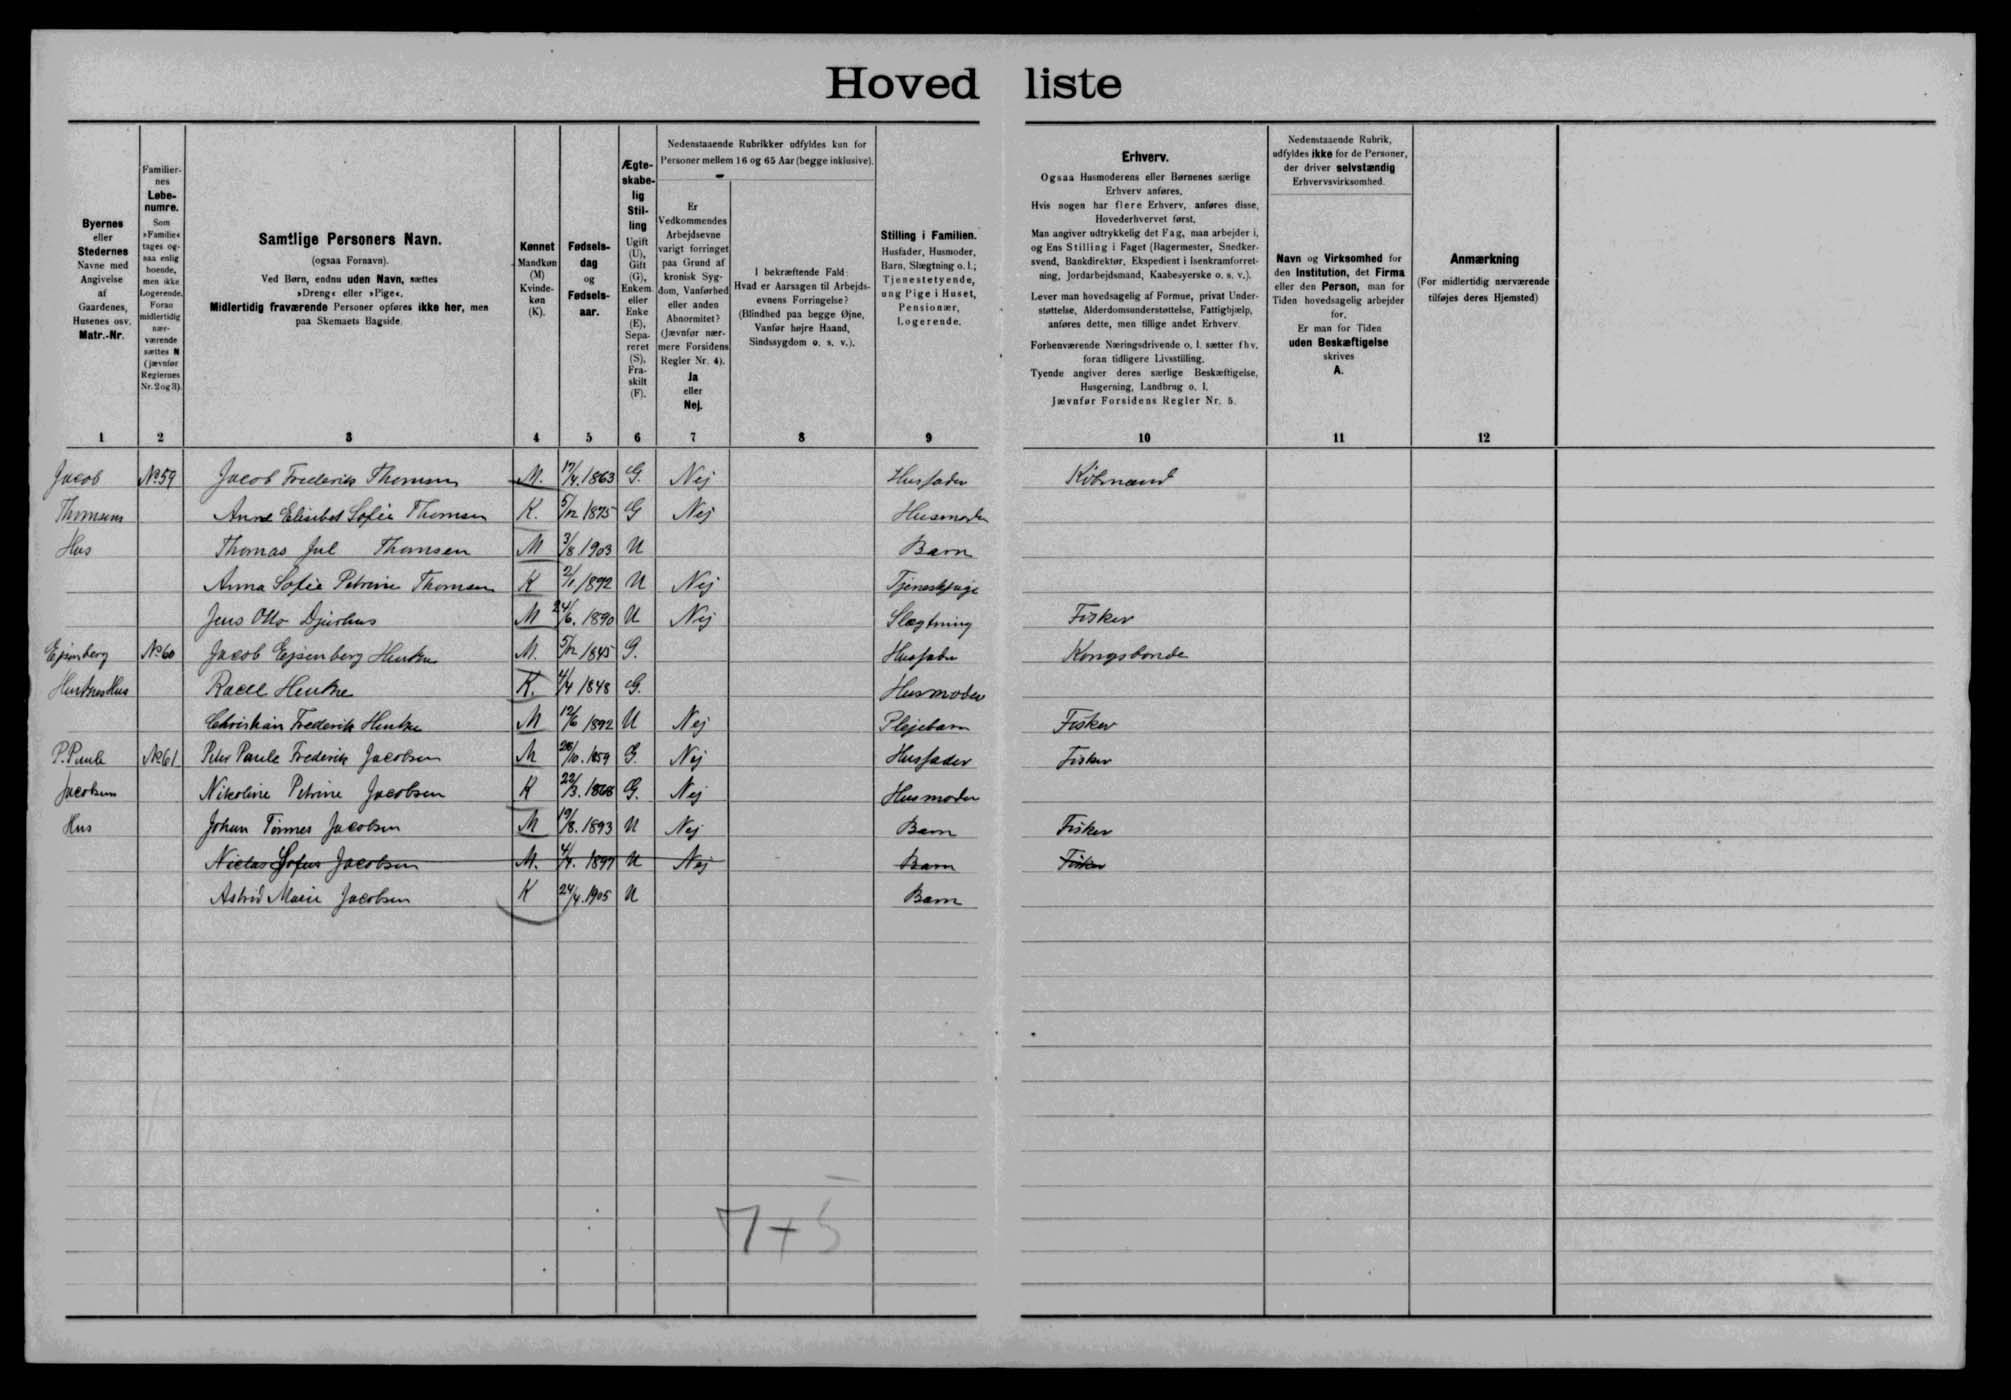 Hovedliste
Byernes eller Stedernes Navne med Angivelse af Gaardenes, Husenes osv. Matr.-Nr.
Familiernes Løbenumre. Som »Familie« tages ogsaa enlig boende, men ikke Logerende. Foran midlertidig nærværende sættes N (jævnfør Reglernes Nr. 2 og 3).
Samtlige Personers Navn.
(ogsaa Fornavn).
Ved Børn, endnu uden Navn, sættes
»Dreng« eller »Pige«.
Midlertidig fraværende Personer opføres ikke her, men
paa Skemaets Bagside.
Kønnet Mandkøn (M) Kvindekøn (K).
Fødselsdag og Fødselsaar.
Ægteskabelig Stilling Ugift (U), Gift (G), Enkem. eller Enke (E), Separeret (S), Fraskilt (F).
Nedenstaaende Rubrikker udfyldes kun for
Personer mellem 16 og 65 Aar (begge inklusive).
Er Vedkommendes Arbejdsevne varigt forringet paa Grund af kronisk Sygdom, Vanførhed eller anden Abnormitet? (Jævnfør nærmere Forsidens Regler Nr. 4). Ja eller Nej.
I bekræftende Fald: Hvad er Aarsagen til Arbejdsevnens Forringelse? (Blindhed paa begge Øjne, Vanfør højre Haand, Sindssygdom o. s. v.).
Stilling i Familien.
Husfader, Husmoder, Barn, Slægtning o. l.; Tjenestetyende, ung Pige i Huset, Pensionær, Logerende.
Erhverv.
Ogsaa Husmoderens eller Børnenes særlige
Erhverv anføres.
Hvis nogen har flere Erhverv, anføres disse,
Hovederhvervet først.
Man angiver udtrykkelig det Fag, man arbejder i,
og Ens Stilling i Faget (Bagermester, Snedker-
svend, Bankdirektør, Ekspedient i Isenkramforret-
ning, Jordarbejdsmand, Kaabesyerske o. s. v.).
Lever man hovedsagelig af Formue, privat Under-
støttelse, Alderdomsunderstøttelse, Fattighjælp,
anføres dette, men tillige andet Erhverv.
Forhenværende Næringsdrivende o. l. sætter fhv.
foran tidligere Livsstilling.
Tyende angiver deres særlige Beskæftigelse,
Husgerning, Landbrug o. l.
Jævnfør Forsidens Regler Nr. 5.
Nedenstaaende Rubrik,
udfyldes ikke for de Personer,
der driver selvstændig
Erhvervsvirksomhed.
Navn og Virksomhed for
den Institution, det Firma
eller den Person, man for
Tiden hovedsagelig arbejder
for.
Er man for Tiden
uden Beskæftigelse
skrives
A.
Anmærkning
(For midlertidig nærværende
tilføjes deres Hjemsted)
1 2 3 4 5 6 7 8 9 10 11 12
Jacob No 59 Jacob Frederik Thomsen M. 17/4. 1863 G. Nej Husfader Købmand
Thomsens Anne Elisabet Sofie Thomsen K. 5/12 1875 G Nej Husmoder
Hus Thomas Jul Thomsen M 3/8 1903 U Barn
Anna Sofie Petrine Thomsen K 2/1 1892 U Nej Tjenestepige
Jens Otto Djurhus M 24/6. 1890 U Nej Slægtning Fisker
Ejsenberg No 60 Jacob Ejsenberg Hentze M. 5/12 1845 G. Husfader Kongsbonde
Hentzes Hus Racel Hentze K. 4/4 1848 G. Husmoder
Christian Frederik Hentze M 12/6 1892 U Nej Plejebarn Fisker
P. Paule No 61 Peter Paule Frederik Jacobsen M 28/10. 1859 G. Nej Husfader Fisker
Jacobsens Nikoline Petrine Jacobsen K 22/3. 1868 G. Nej Husmoder
Hus Johan Tormes Jacobsen M 19/8. 1893 U Nej Barn Fisker
Niclas Sofus Jacobsen M. 4/4. 1897 U Nej Barn Fisker
Astrid Marie Jacobsen K 24/4. 1905 U Barn
7+5